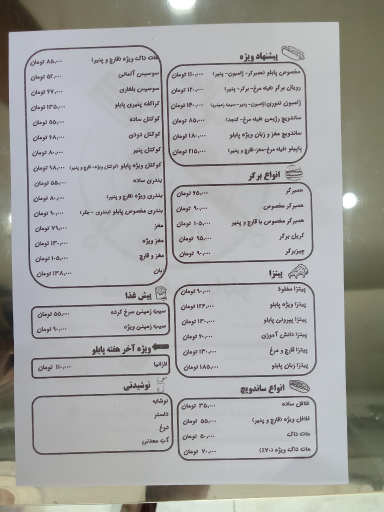 پیشنهاد ویژه
مخصوص پابلو (همبرگر- ژامبون- پنیر) ۱۱۰,۰۰۰ تومان
رویال برگر (فیله مرغ- برگر- پنیر) ۱۲۰,۰۰۰ تومان
ژامبون تنوری (ژامبون-پنیر-سیب زمینی) ۱۴۰,۰۰۰ تومان
ساندویچ رژیمی (فیله مرغ- کنجد) ۸۵,۰۰۰ تومان
ساندویچ مغز و زبان ویژه پابلو ۱۸۰,۰۰۰ تومان
پاپیلو (فیله مرغ-مغز-قارچ و پنیر) ۲۱۵,۰۰۰ تومان
انواع برگر
همبرگر ۷۵,۰۰۰ تومان
همبرگر مخصوص ۹۰,۰۰۰ تومان
همبرگر مخصوص با قارچ و پنیر ۱۰۵,۰۰۰ تومان
گریل برگر ۹۵,۰۰۰ تومان
چیزبرگر ۹۰,۰۰۰ تومان
پیتزا
پیتزا مخلوط ۹۰,۰۰۰ تومان
پیتزا ویژه پابلو ۱۲۴,۰۰۰ تومان
پیتزا پپرونی پابلو ۱۳۰,۰۰۰ تومان
پیتزا دانش آموزی ۷۰,۰۰۰ تومان
پیتزا قارچ و مرغ ۱۳۰,۰۰۰ تومان
پیتزا زبان پابلو ۱۸۵,۰۰۰ تومان
انواع ساندویچ
فلافل ساده ۳۵,۰۰۰ تومان
فلافل ویژه (قارچ و پنیر) ۵۵,۰۰۰ تومان
هات داگ ۵۰,۰۰۰ تومان
هات داگ ویژه (۷۰٪) ۷۰,۰۰۰ تومان
هات داگ ویژه (قارچ و پنیر) ۸۵,۰۰۰ تومان
سوسیس آلمانی ۵۲,۰۰۰ تومان
سوسیس بلغاری ۶۷,۰۰۰ تومان
کراکف پنیری پابلو ۱۳۵,۰۰۰ تومان
کوکتل ساده ۵۵,۰۰۰ تومان
کوکتل دودی ۶۸,۰۰۰ تومان
کوکتل پنیر ۸۰,۰۰۰ تومان
کوکتل ویژه پابلو (کوکتل ویژه-قارچ و پنیر) ۹۸,۰۰۰ تومان
بندری ساده ۵۵,۰۰۰ تومان
بندری ویژه (قارچ و پنیر) ۸۰,۰۰۰ تومان
بندری مخصوص پابلو (بندری – جگر) ۹۰,۰۰۰ تومان
مغز ۷۹,۰۰۰ تومان
مغز ویژه ۱۳۰,۰۰۰ تومان
مغز و قارچ ۱۰۵,۰۰۰ تومان
زبان ۱۳۸,۰۰۰ تومان
پیش غذا
سیب زمینی سرخ کرده ۵۵,۰۰۰ تومان
سیب زمینی ویژه ۹۰,۰۰۰ تومان
ویژه آخر هفته پابلو
لازانیا ۱۱۰,۰۰۰ تومان
نوشیدنی
نوشابه
دلستر
دوغ
آب معدنی